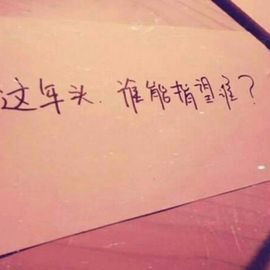 这年头.谁能指望谁?